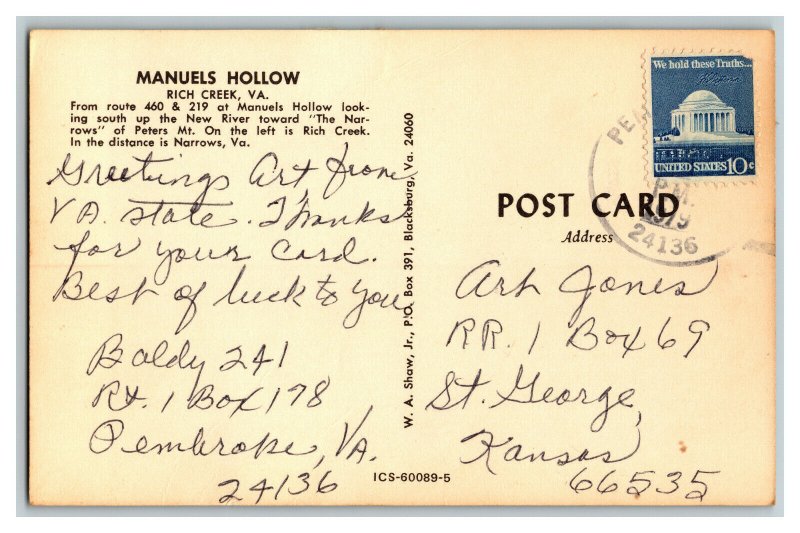 MANUELS HOLLOW
RICH CREEK, VA.
From route 460 & 219 at Manuels Hollow look-
ing south up the New River toward "The Nar-
rows" of Peters Mt. On the left is Rich Creek.
In the distance is Narrows, Va.
Greetings Art, from
VA. state. Thanks
for your card.
Best of luck to you
Baldy 241
Rt. 1 Box 178
Pembroke, VA.
24136
W. A. Shaw, Jr., P.O. Box 391, Blacksburg, Va. 24060
ICS-60089-5
We hold these Truths...
UNITED STATES 10c
PE
P.M.
1979
24136
POST CARD
Address
Art Jones
RR. 1 Box 69
St. George,
Kansas
66535